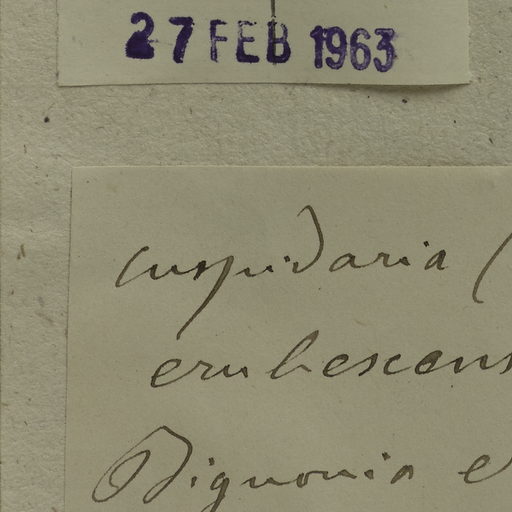 27 FEB 1963
cuspidaria (
erubescens
Bignonia e